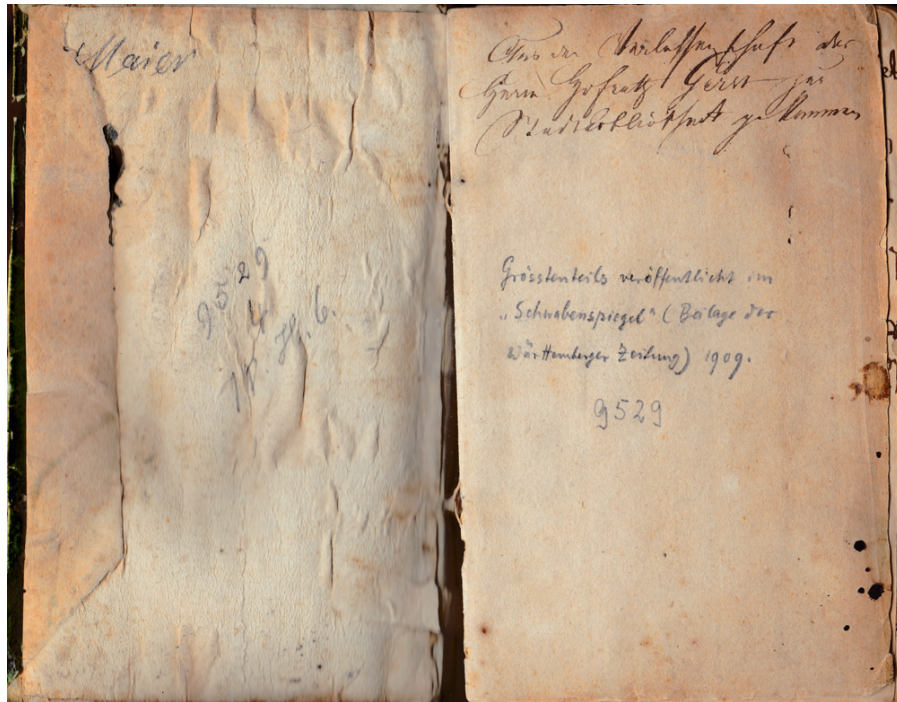 Maier
9529
Aus der Verlassenschaft des
Herrn Hofrath zur
Stadtbibliothek gekommen
Grösstenteils veröffentlicht im
„Schwabenspiegel" (Beilage der
Württemberger Zeitung) 1909.
9529